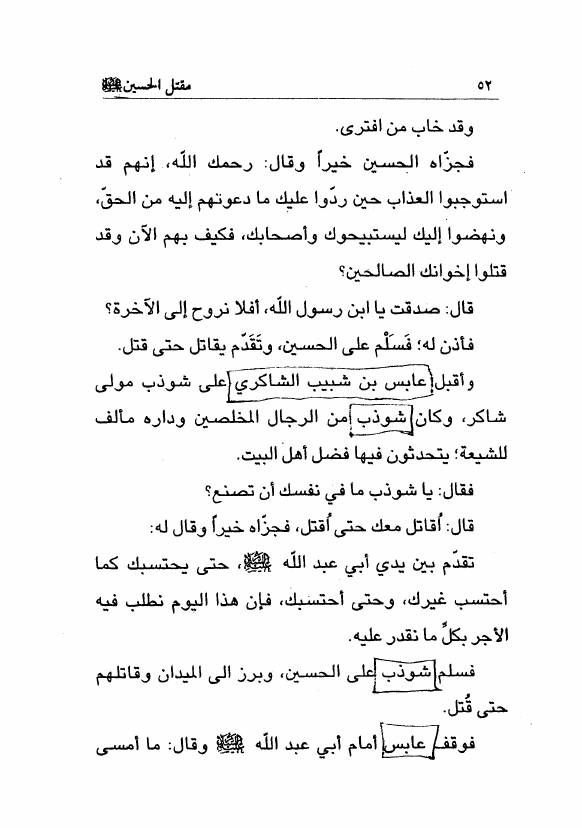 ٥٢ مقتل الحسين ﵇
وقد خاب من افترى.
فجزّاه الحسين خيراً وقال: رحمك اللّه، إنهم قد
استوجبوا العذاب حين ردّوا عليك ما دعوتهم إليه من الحقّ،
ونهضوا إليك ليستبيحوك وأصحابك، فكيف بهم الآن وقد
قتلوا إخوانك الصالحين؟
قال: صدقت يا ابن رسول اللّه، أفلا نروح إلى الآخرة؟
فأذن له؛ فَسَلْم على الحسين، وتَقَدّم يقاتل حتى قتل.
وأقبل عابس بن شبيب الشاكري على شوذب مولى
شاكر، وكان شوذب من الرجال المخلصين وداره مألف
للشيعة؛ يتحدثون فيها فضل أهل البيت.
فقال: يا شوذب ما في نفسك أن تصنع؟
قال: أُقاتل معك حتى أُقتل، فجزّاه خيراً وقال له:
تقدّم بين يدي أبي عبد اللّه ﵇، حتى يحتسبك كما
أحتسب غيرك، وحتى أحتسبك، فإن هذا اليوم نطلب فيه
الأجر بكلِّ ما نقدر عليه.
فسلم شوذب على الحسين، وبرز الى الميدان وقاتلهم
حتى قُتل.
فوقف عابس أمام أبي عبد اللّه ﵇ وقال: ما أمسى